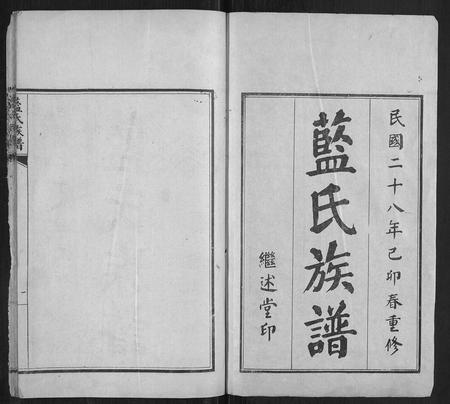 民國二十八年己卯春重修
藍氏族譜
繼述堂印
藍氏族譜